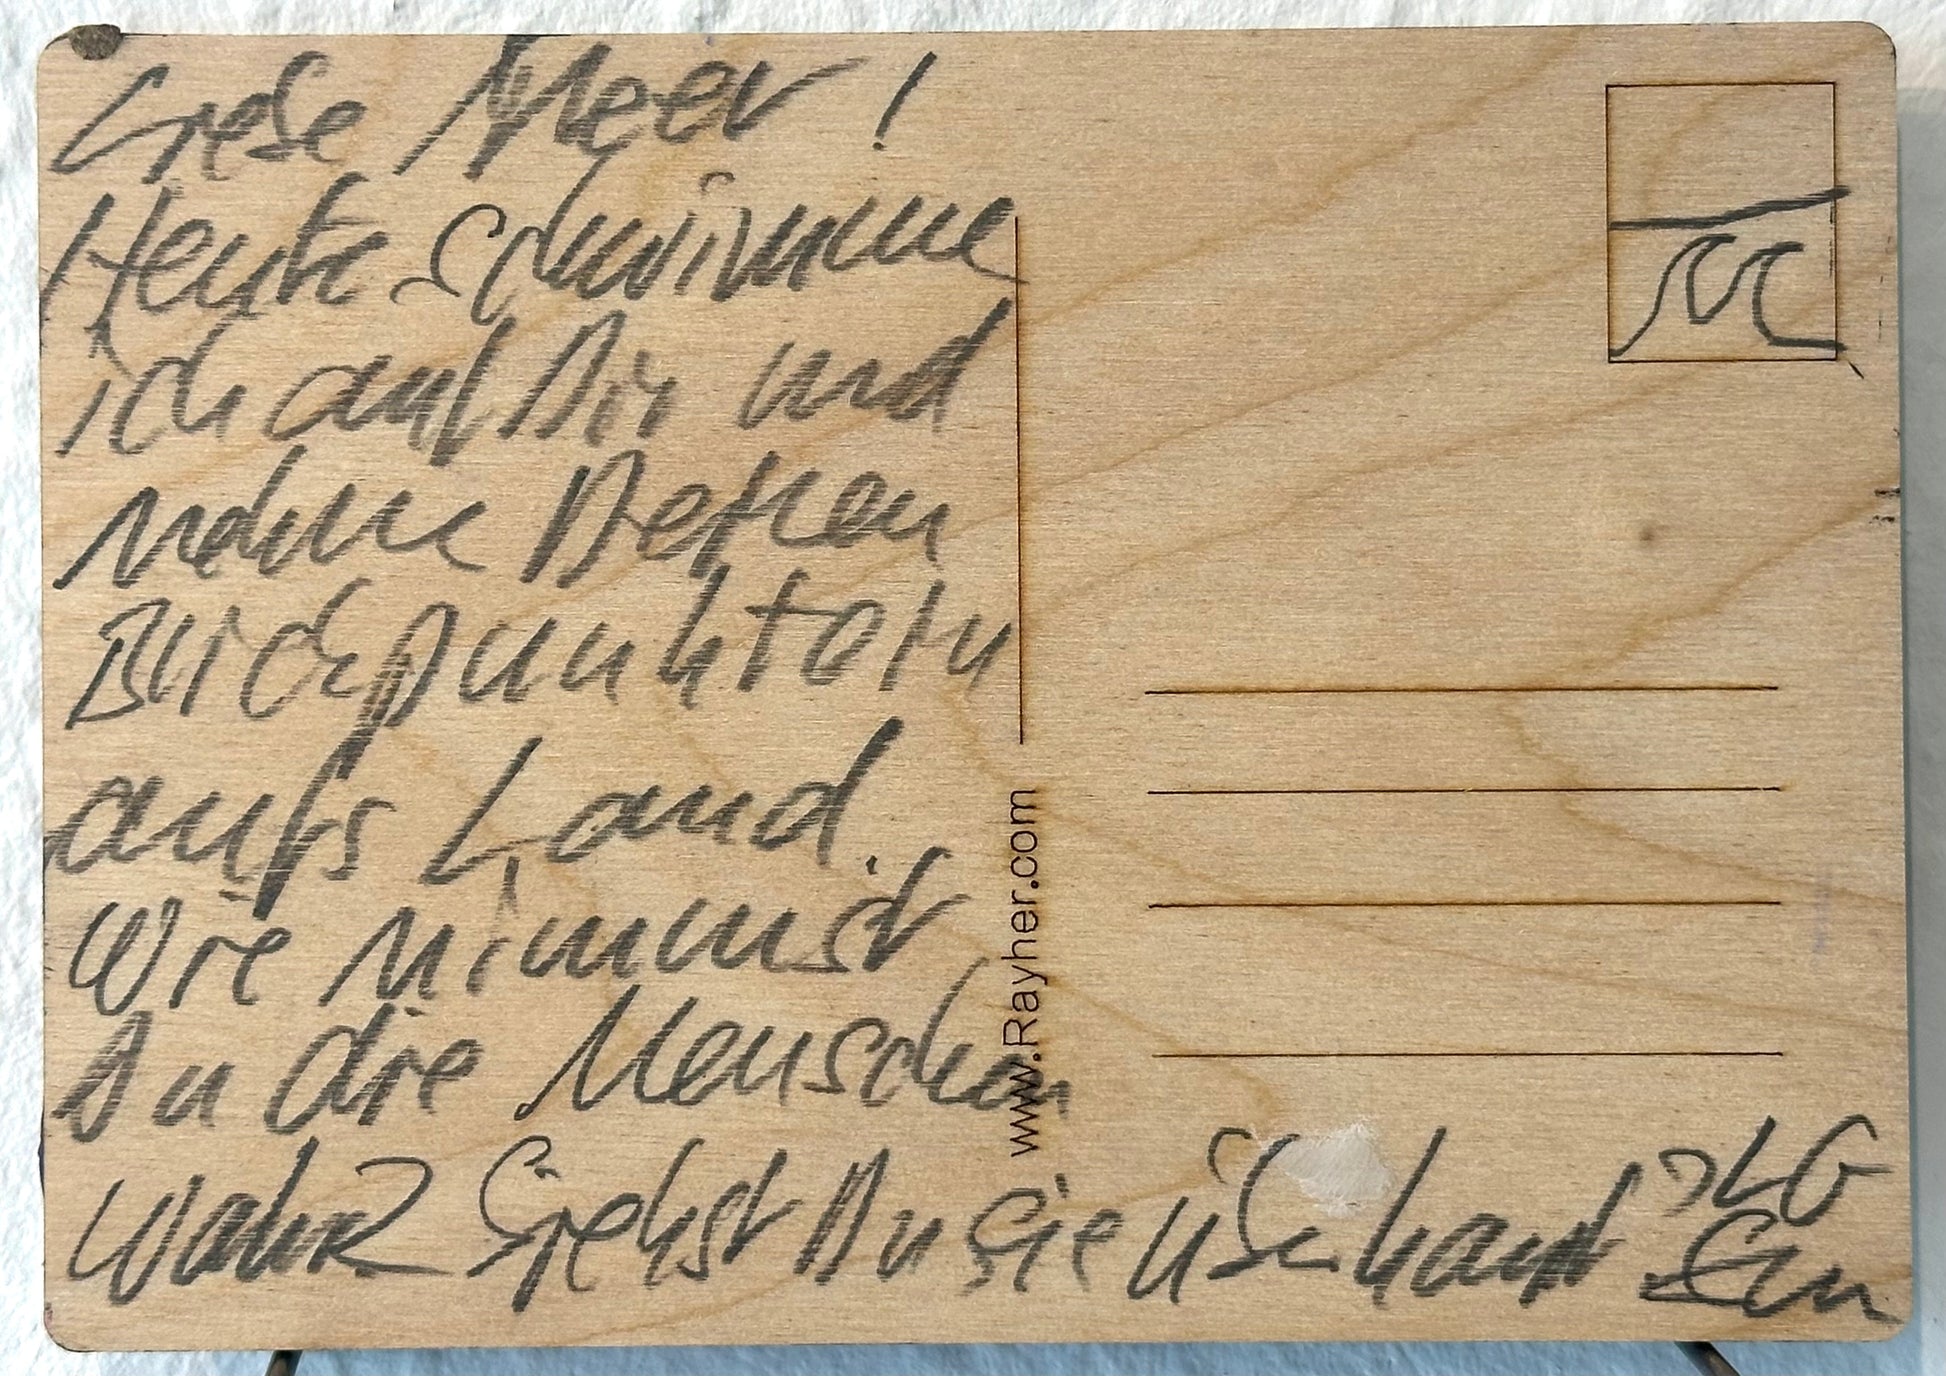 Liebe Meer!
Heute schwimme
ich auf Dir und
nehme Deinen
Blickpunkt ein
aufs Land.
Wie nimmst
Du die Menschen
wahr? Siehst Du sie überhaupt? LG
www.Rayher.com